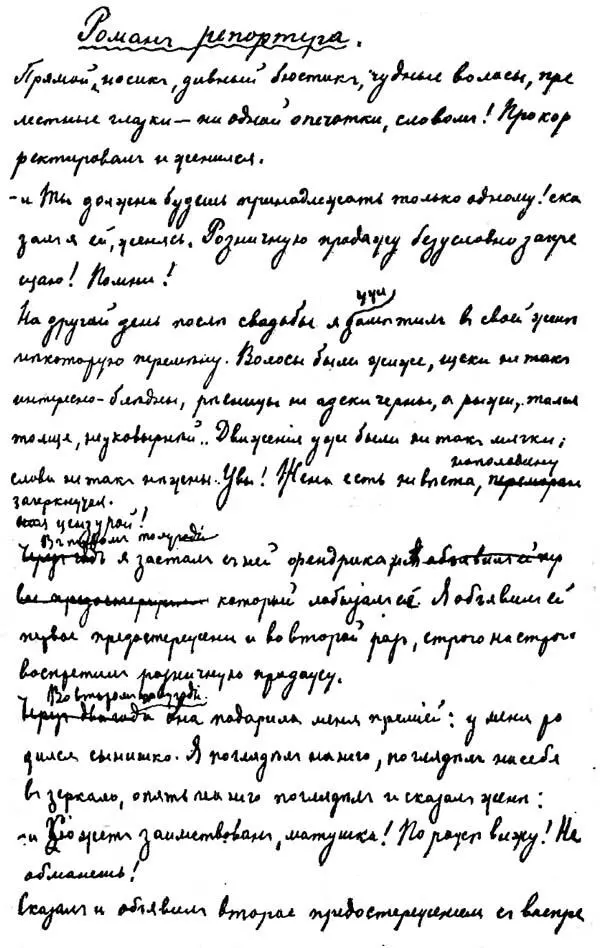 Романъ репортера.
Прямой носикъ, дивный бюстикъ, чудные волосы, пре
лестные глазки — ни одной опечатки, словомъ! Прокор
ректировалъ и женился.
— Ты должна будешь принадлежать только одному! ска
залъ я ей, женясь. Розничную продажу безусловно запре
щаю! Помни!
На другой день послѣ свадьбы я замѣтилъ в своей женѣ
нѣкоторую перемѣну. Волосы были жиже, щеки не такъ
интересно-блѣдны, рѣсницы не адски черны, а рыжи, талья
толще, неуковырный.. Движенія уже были не такъ мягки;
слова не такъ нѣжны. Увы! Жена есть невѣста, наполовину
зачеркнутая
цензурой!
Въ первомъ полугодіи
Черезъ годъ я засталъ съ ней френдрика
который лобызалъ её. Я объявилъ ей
первое предостереженіе и во второй разъ, строго на строго
воспретилъ розничную продажу.
Во второмъ полугодіи
она подарила меня преміей: у меня ро
дился сынишко. Я поглядѣлъ на него, поглядѣлъ на себя
въ зеркало, опять на него поглядѣлъ и сказалъ женѣ:
— заимствованъ, матушка! По рожѣ вижу! Не
обманешь!
Сказалъ и объявилъ второе предостереженіе съ воспре